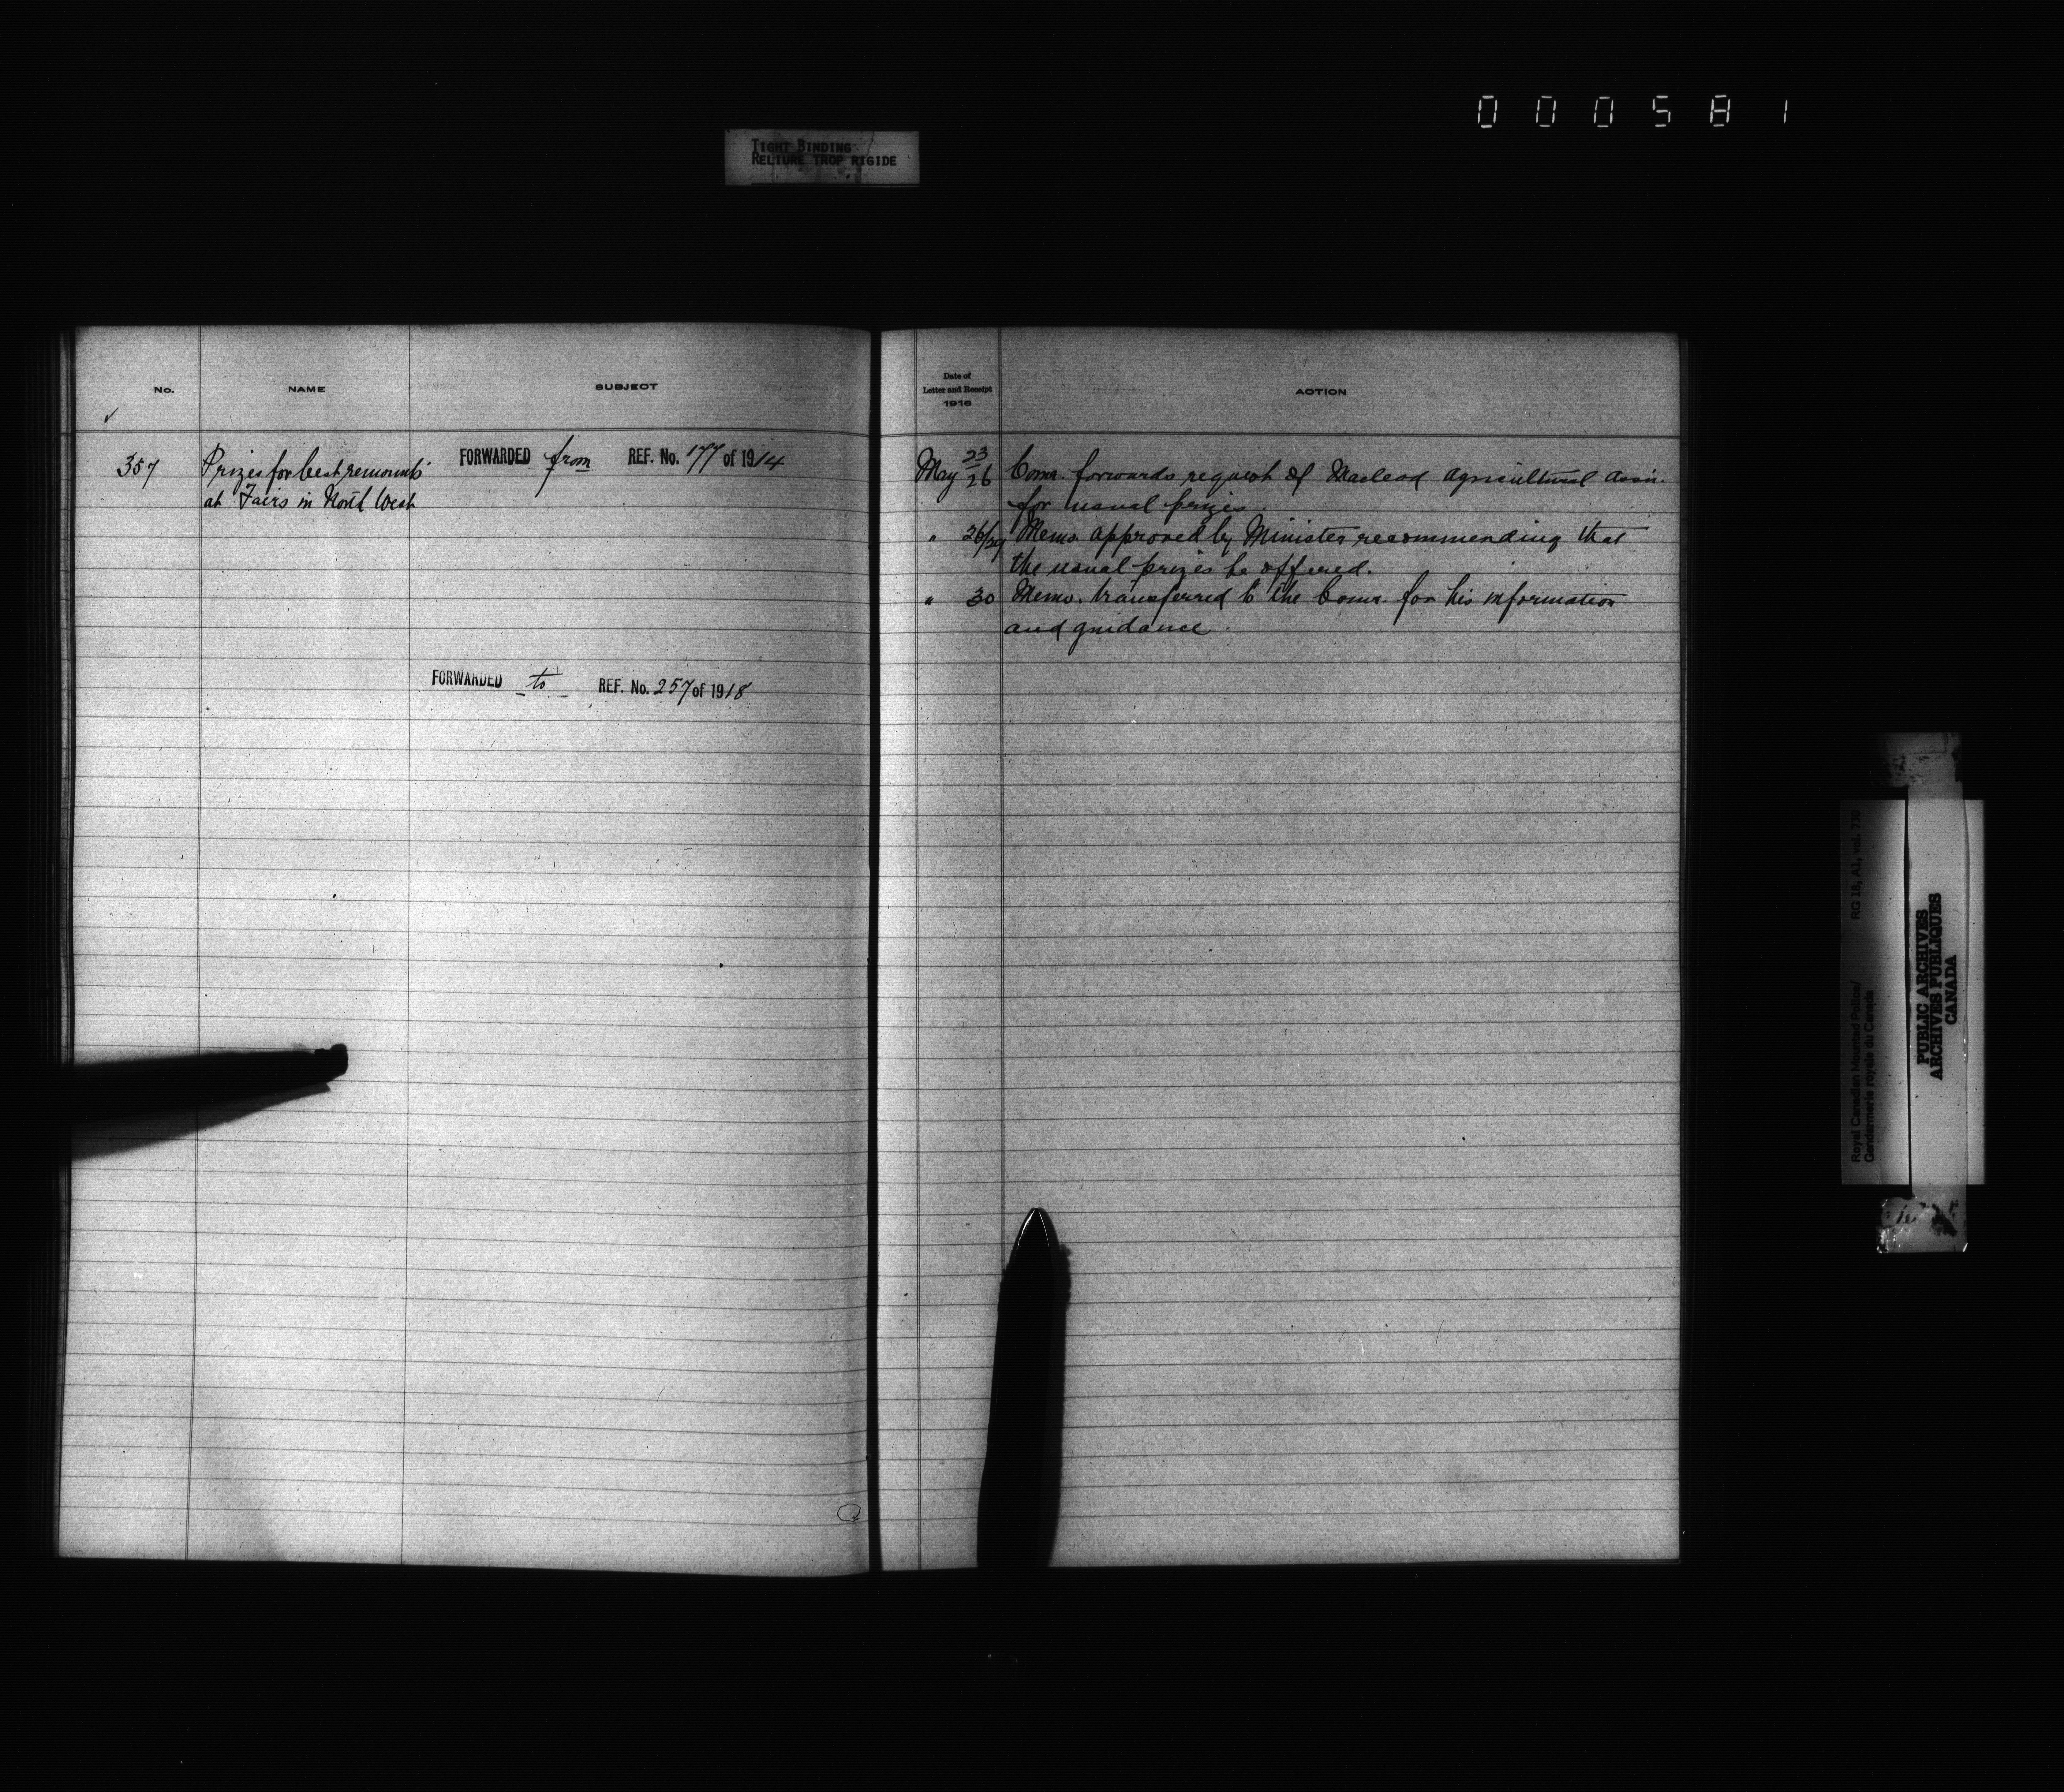 000581
TIGHT BINDING
RELIURE TROP RIGIDE
No.
NAME
SUBJECT
✓
357
Prizes for best remounts
at Fairs in North West
FORWARDED from REF. No. 177 of 1914
FORWARDED to REF. No. 257 of 1918
Date of
Letter and Receipt
1916
ACTION
May 23/26 Comr. forwards request of Macleod Agricultural Assn.
for usual prizes.
" 26/29 Memo. approved by Minister recommending that
the usual prizes be offered.
" 30 Memo. transferred to the Comr. for his information
and guidance.
Royal Canadian Mounted Police/ RG 18, A1, vol. 730
Gendarmerie royale du Canada
PUBLIC ARCHIVES
ARCHIVES PUBLIQUES
CANADA